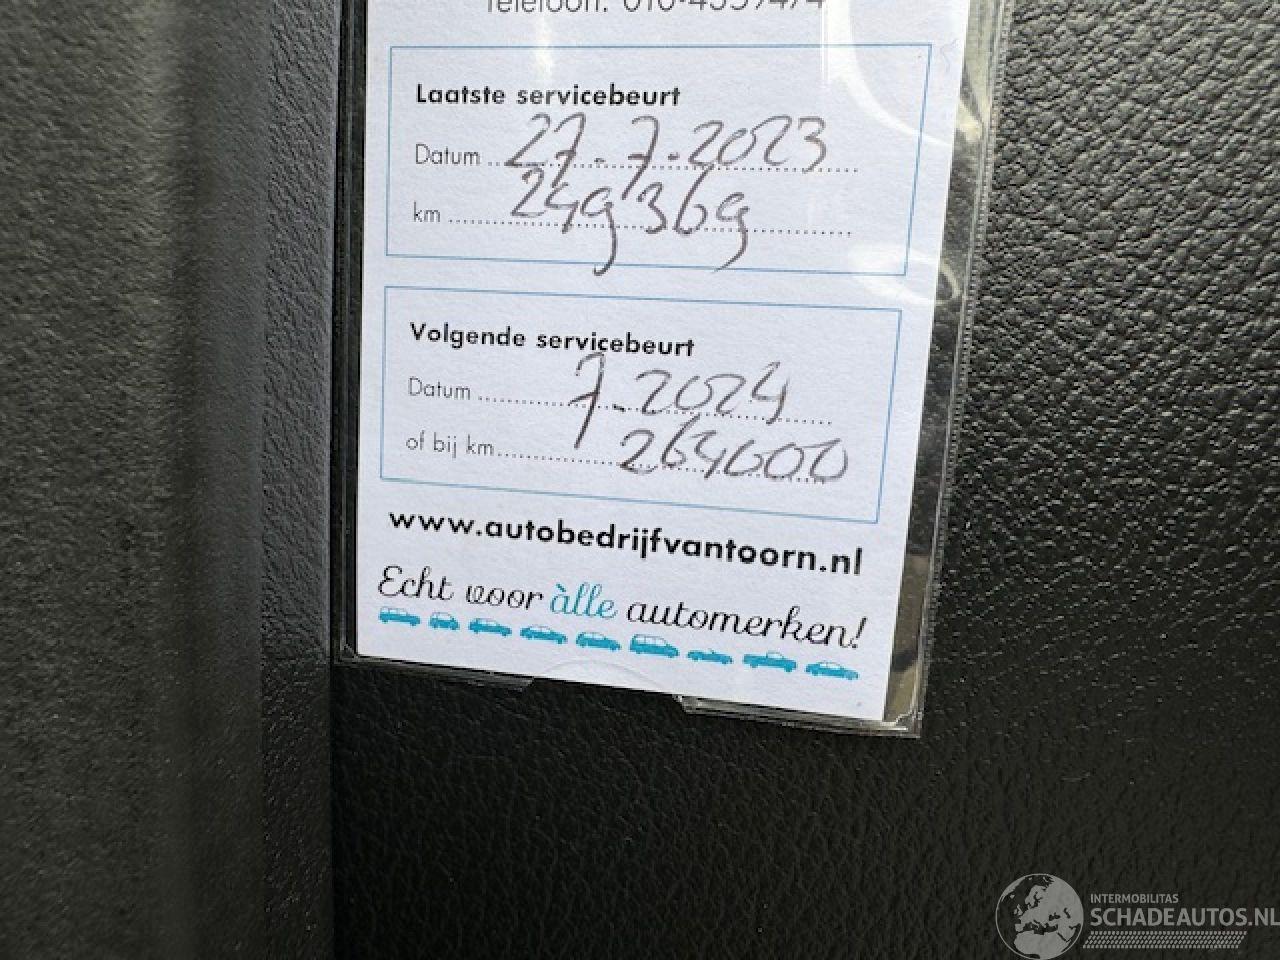 Telefoon: 010-4559474
Laatste servicebeurt
Datum 27-7-2023
km 249369
Volgende servicebeurt
Datum 7-2024
of bij km 264000
www.autobedrijfvantoorn.nl
Echt voor àlle automerken!
INTERMOBILITAS
SCHADEAUTOS.NL